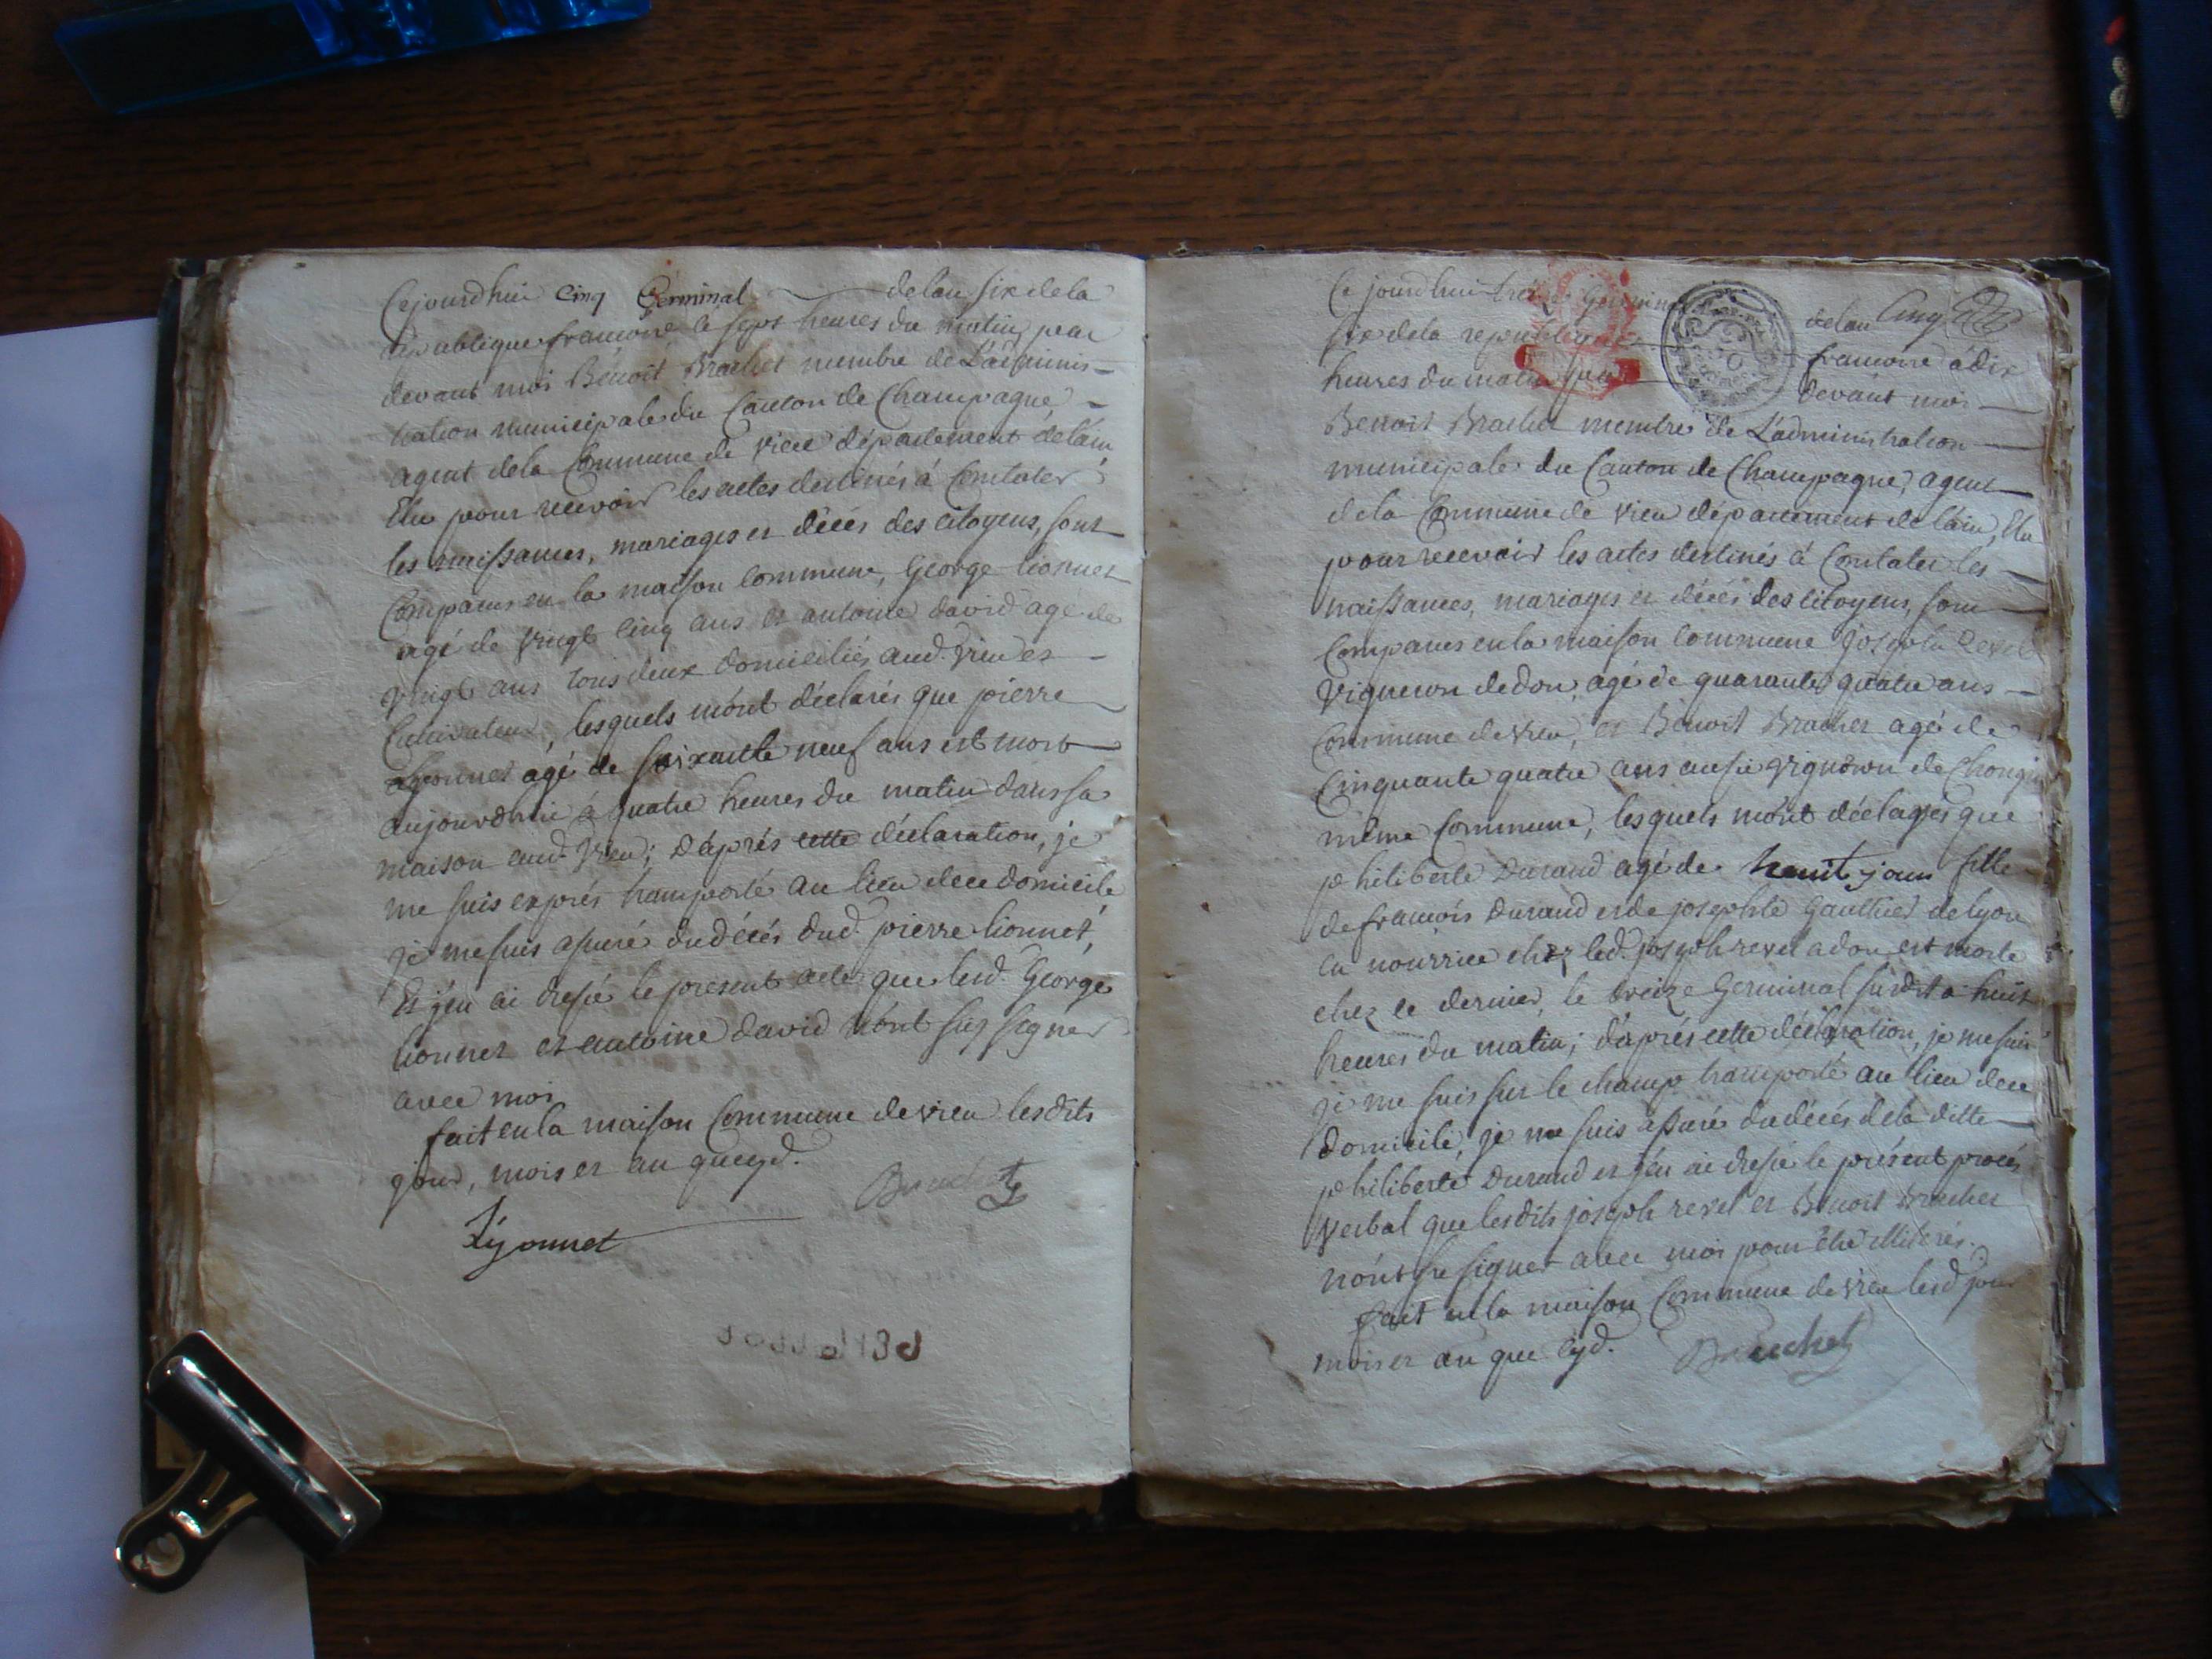 Cejourdhui Cinq Germinal de lan six de la
république francoise à sept heures du matin, par
devant moi Benoit Brachet membre de L'adminis-
tration municipale du Canton de Champagne
agent de la Commune de vieu département de lain,
Elu pour recevoir les actes destinés à Constater
les naissances, mariages et décés des citoyens, sont
Comparus en la maison Commune, George lionnet
agé de vingt Cinq ans et antoine david agé de
vingt ans tous deux domiciliés aud. vieu et
Cultivateurs, lesquels m'ont déclarés que pierre
lionnet agé de soixante neuf ans est mort
aujourdhui à quatre heures du matin dans sa
maison aud. vieu; d'après cette déclaration, je
me suis exprés transporté au lieu de ce domicile
je me suis assuré du décés dud. pierre lionnet,
Et j'en ai dressé le present acte que lesd. George
lionnet et antoine david n'ont sus signer
avec moi
fait en la maison Commune de vieu lesdits
jour, mois et an que cyd.
Brachet
Lyonnet
Ce jourdhui treize Germinal de lan Cinq
six de la republique francoise à dix
heures du matin par devant moi
Benoit Brachet membre de L'administration
municipale du Canton de Champagne, agent
de la Commune de vieu département de lain, Elu
pour recevoir les actes destinés à Constater les
naissances, mariages et décés des citoyens, sont
Comparus en la maison Commune joseph Revel
vigneron de don, agé de quarante quatre ans
Commune de vieu, et Benoit Brachet agé de
Cinquante quatre ans aussi vigneron de Chongn
même Commune, lesquels m'ont déclarés que
philiberte Durand agé de huit jours fille
de francois Durand et de josephte Gauthier de lyon
en nourrice chez led. joseph revel a don est morte
chez ce dernier, le treize Germinal susdit à huit
heures du matin; d'après cette déclaration, je me suis
je me suis sur le champ transporté au lieu de ce
domicile, je me suis assuré du décés de la ditte
philiberte Durand et j'en ai dressé le présent procés
verbal que lesdits joseph revel et Benoit Brachet
n'ont su signer avec moi pour être illiterés.
fait en la maison Commune de vieu lesd jour
mois et an que cyd. Brachet